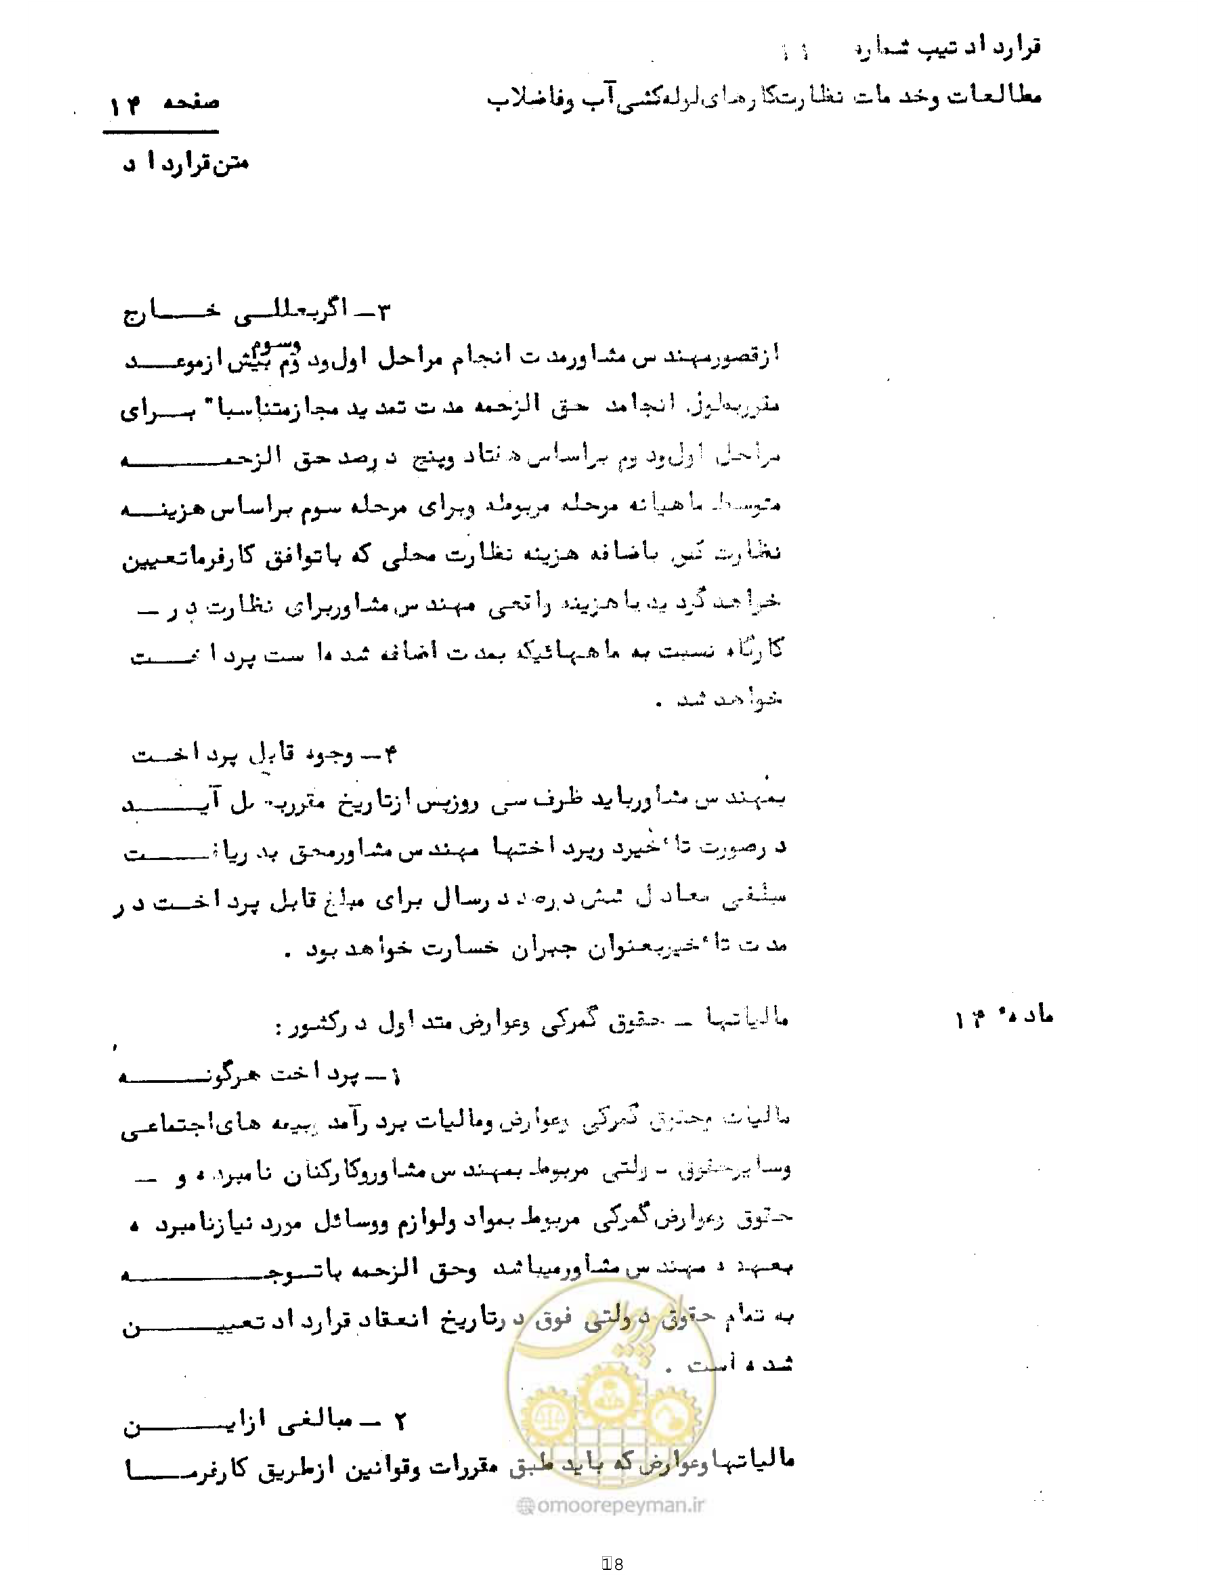 قرارداد تیپ شماره ۱۱
مطالعات وخدمات نظارت‌کارهای‌لوله‌کشی‌آب وفاضلاب
صفحه ۱۴
متن‌قرارداد
۳ـ اگربعللـی خـــارج
ازقصورمهندس مشاورمدت انجام مراحل اول‌ودوم وسوم بیش ازموعـــد
مقرربطول انجامد حق الزحمه مدت تمدید مجازمتناسبا" بــرای
مراحل اول‌ودوم براساس هفتاد وپنج درصد حق الزحمـــــه
متوسط ماهیانه مرحله مربوطه وبرای مرحله سوم براساس هزینــه
نظارت کس باضافه هزینه نظارت محلی که باتوافق کارفرماتعیین
خواهدگردید یاهزینه واقعی مهندس‌مشاوربرای نظارت در ـ
کارگاه نسبت به ماههائیکه بمدت اضافه شده است پرداخـــت
خواهد شد .
۴ـ وجوه قابل پرداخـت
بمهندس مشاورباید ظرف سی روزپس ازتاریخ مقرربعمل آیـــــد
درصورت تاٴخیردرپرداختها مهندس مشاورمحق بدریافــــت
مبلغی معادل شش درصد درسال برای مبلغ قابل پرداخـت در
مدت تاٴخیربعنوان جبران خسارت خواهد بود .
مادهٴ ۱۴
مالیاتها ـ حقوق گمرکی وعوارض متداول درکشور :
۱ـ پرداخت هرگونـــــه
مالیات وحقوق گمرکی وعوارض ومالیات بردرآمد وبیمه های‌اجتماعی
وسایرحقوق دولتی مربوط بمهندس مشاوروکارکنان نامبرده و ـ
حقوق وعوارض‌گمرکی مربوط بمواد ولوازم ووسائل مورد نیازنامبرده
بعهده مهندس مشاورمیباشد وحق الزحمه باتـوجــــــه
به تمام حقوق دولتی فوق درتاریخ انعقاد قرارداد تعییـــــن
شده است .
۲ ـ مبالغی ازایـــــن
مالیاتهاوعوارض‌که باید طبق مقررات وقوانین ازطریق کارفرمـــا
امور پیمان
@omoorepeyman.ir
18